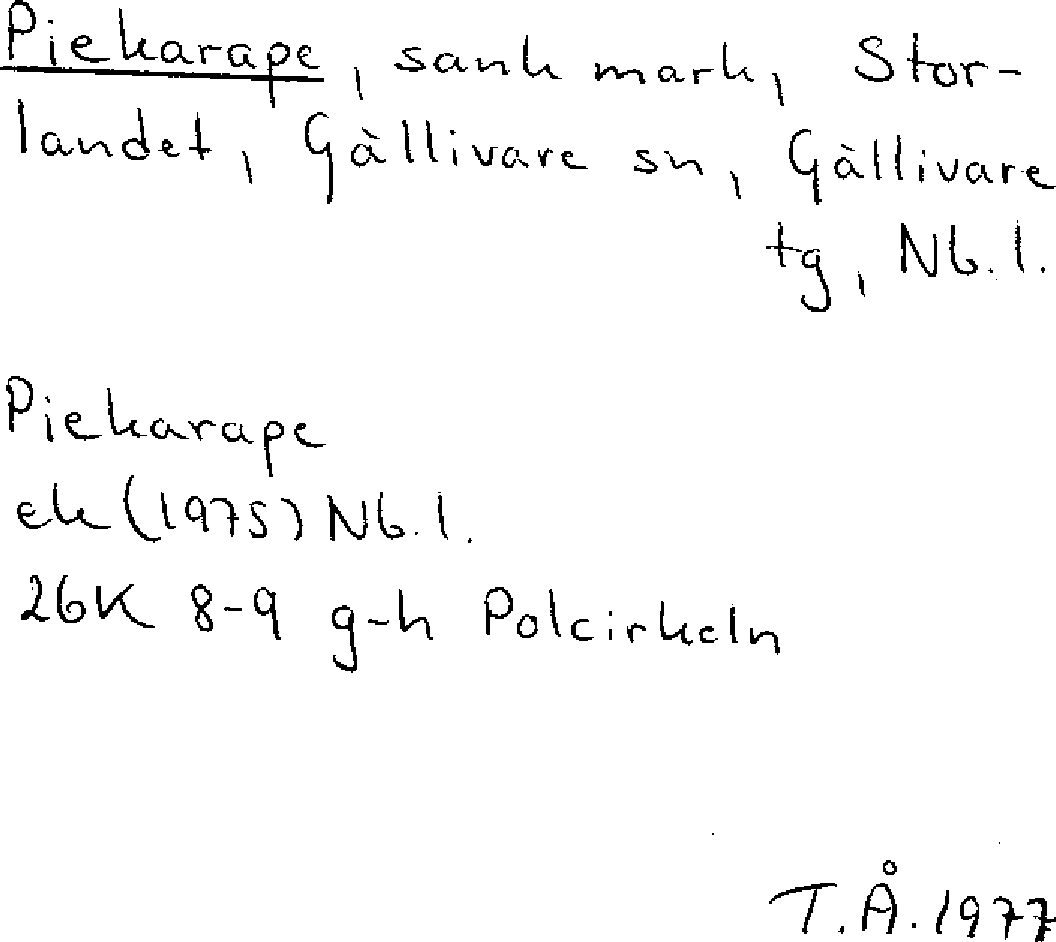 Piekarape, sank mark, Stor-
landet, Gällivare sn, Gällivare
tg, Nb. l.
Piekarape
ek (1975) Nb. l.
26K 8-9 g-h Polcirkeln
T.Å. 1977